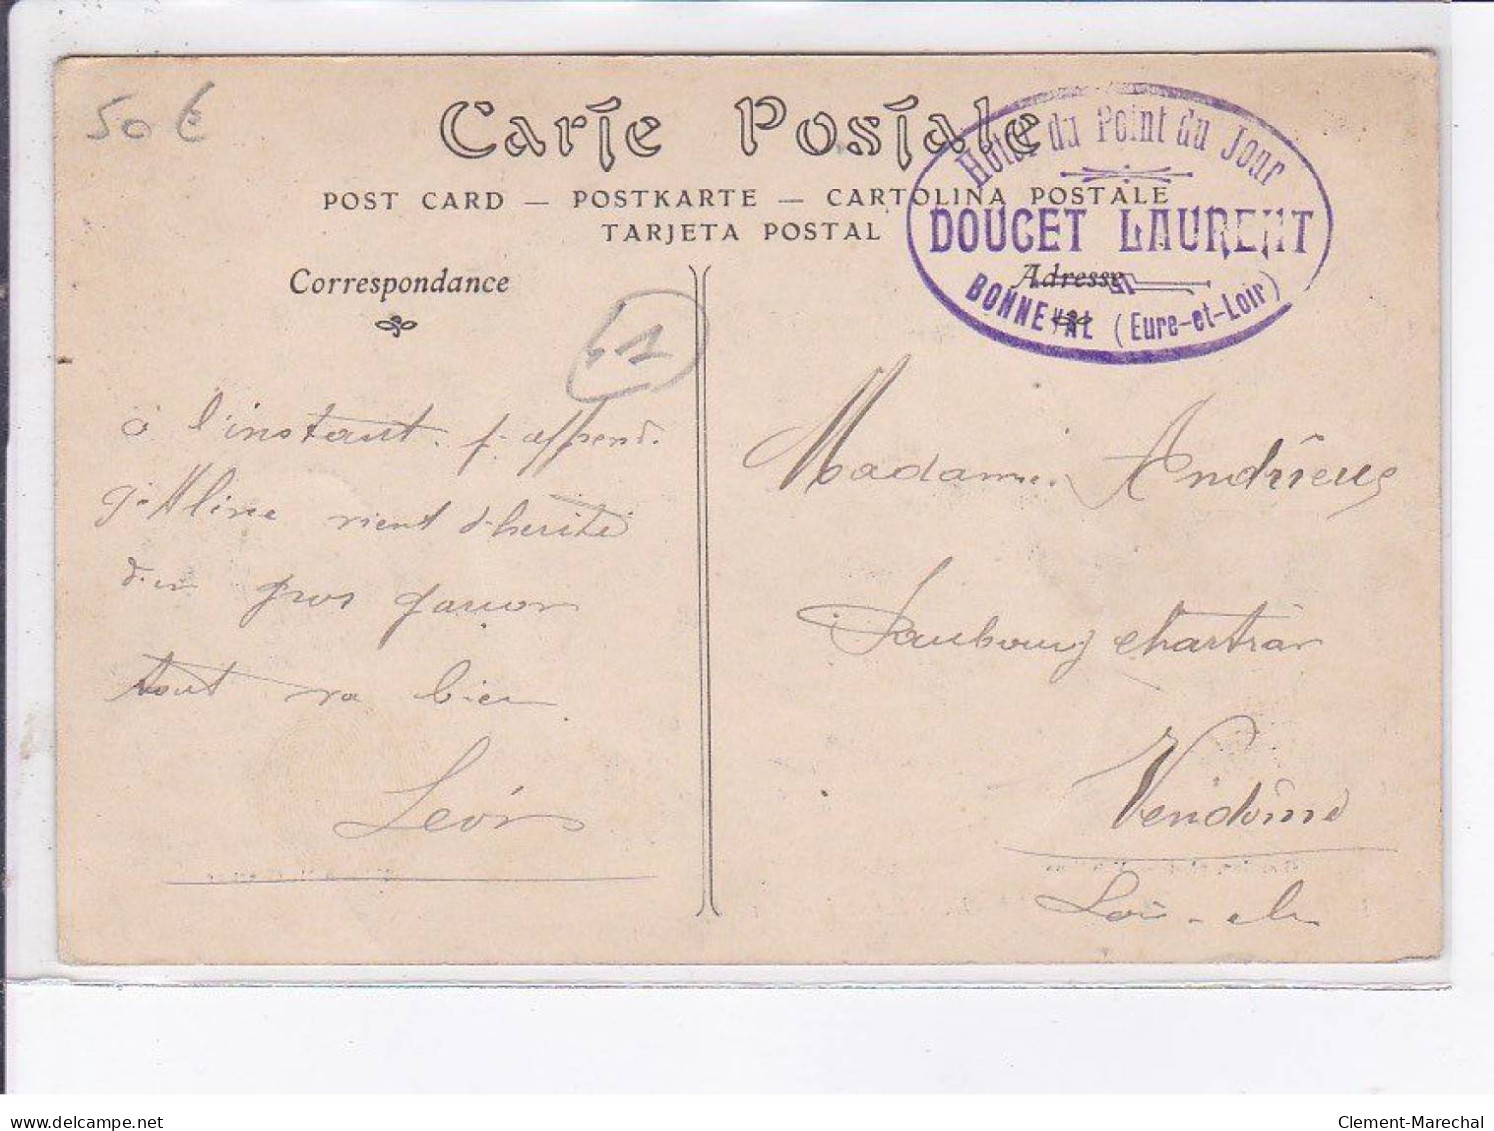 50 €
Carte Postale
POST CARD — POSTKARTE — CARTOLINA POSTALE
TARJETA POSTAL
Hôtel du Point du Jour
DOUCET LAURENT
BONNEVAL (Eure-et-Loir)
Correspondance
Adresse
41
à l'instant j'apprend
q. Aline vient d'hérité
d'un gros garçon
tout va bien
Madame Andrieux
Faubourg chartrain
Vendôme
Loir-et-Cher
delcampe.net
Clement-Marechal